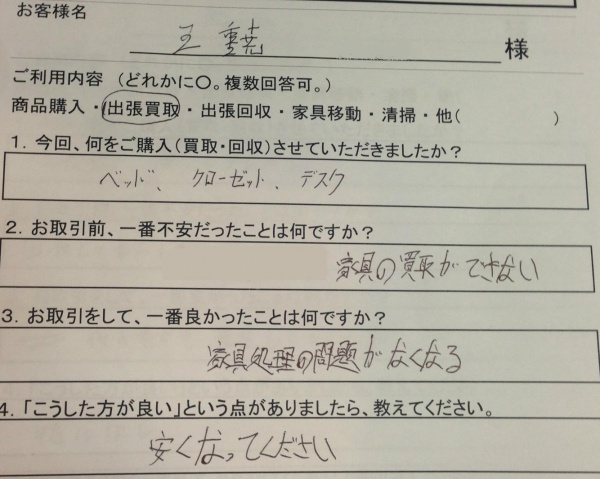 お客様名
王 様
ご利用内容 (どれかに○。複数回答可。)
商品購入・出張買取・出張回収・家具移動・清掃・他( )
1. 今回、何をご購入(買取・回収)させていただきましたか?
ベッド、クローゼット、デスク
2. お取引前、一番不安だったことは何ですか?
家具の買取ができない
3. お取引をして、一番良かったことは何ですか?
家具処理の問題がなくなる
4. 「こうした方が良い」という点がありましたら、教えてください。
安くなってください